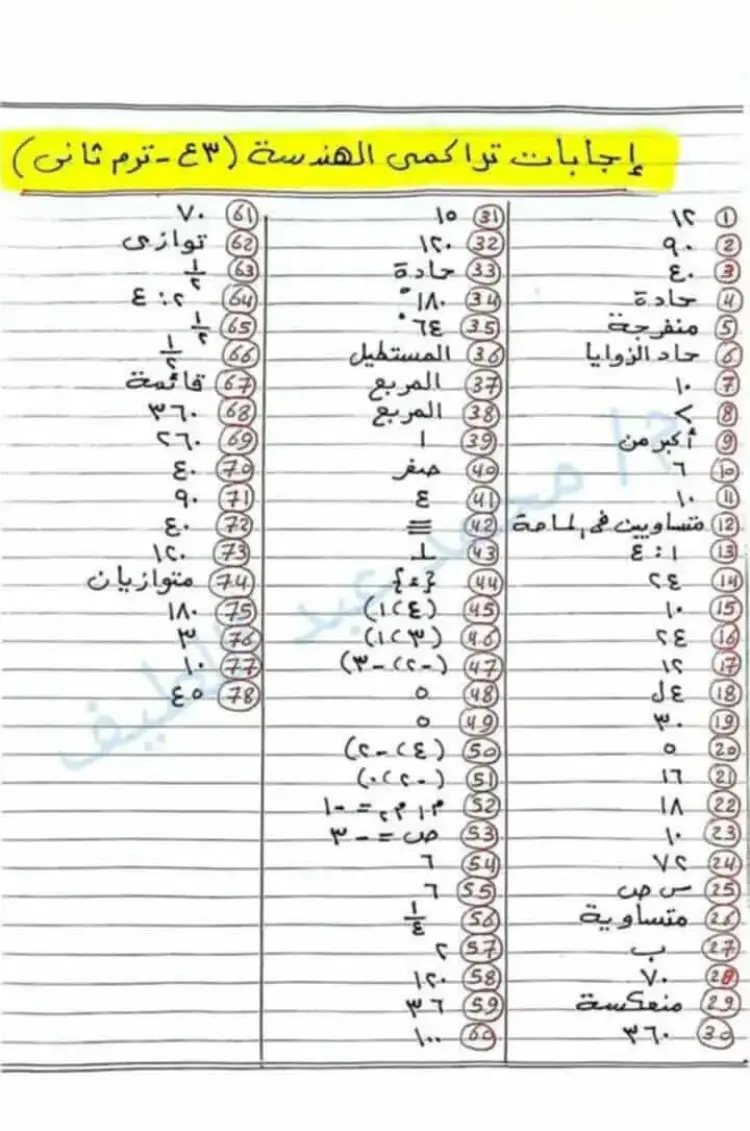 إجابات تراكمى الهندسة (٣ع - ترم ثانى)
1 ١٢
2 ٩٠
3 ٤٠
4 حادة
5 منفرجة
6 حاد الزوايا
7 ١٠
8 >
9 أكبر من
10 ٦
11 ١٠
12 متساويين فى المساحة
13 ١ : ٤
14 ٢٤
15 ١٠
16 ٢٤
17 ١٢
18 ٤ل
19 ٣٠
20 ٥
21 ١٦
22 ١٨
23 ١٠
24 ٧٢
25 س ص
26 متساوية
27 ب
28 ٧٠
29 منعكسة
30 ٣٦٠
31 ١٥
32 ١٢٠
33 حادة
34 ١٨٠°
35 ٦٤°
36 المستطيل
37 المربع
38 المربع
39 ١
40 صفر
41 ٤
42 ≡
43 ⊥
44 {ء}
45 (١، ٤)
46 (١، ٣)
47 (-٢، -٣)
48 ٥
49 ٥
50 (٤، -٢)
51 (-٢، ٠)
52 م١ م٢ = -١
53 ص = -٣
54 ٦
55 ٦
56 ١/٤
57 ٢
58 ١٢٠
59 ٣٦
60 ١٠٠
61 ٧٠
62 توازى
63 ١/٢
64 ٢ : ٤
65 ١/٢
66 ١/٢
67 قائمة
68 ٣٦٠
69 ٢٦٠
70 ٤٠
71 ٩٠
72 ٤٠
73 ١٢٠
74 متوازيان
75 ١٨٠
76 ٣
77 ١٠
78 ٤٥
م/ محمد عبد اللطيف